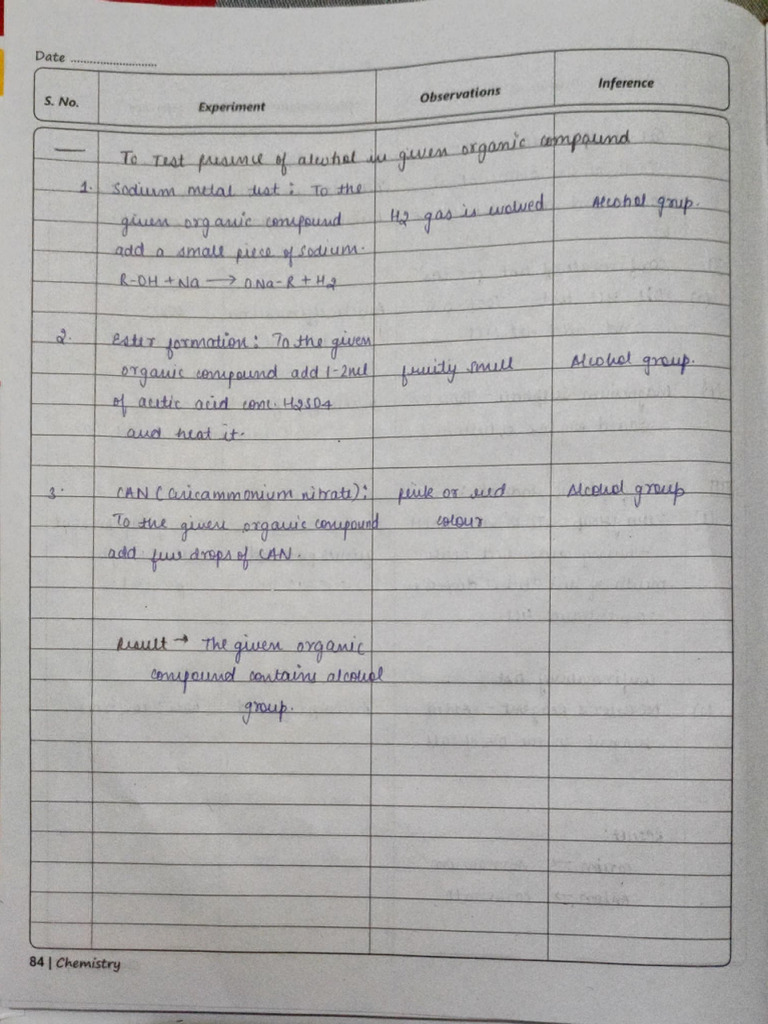 Date
S. No. Experiment Observations Inference
To Test presence of alcohol in given organic compound
1. Sodium metal test : To the
given organic compound
add a small piece of sodium.
R-OH + Na → ONa-R + H2
H2 gas is evolved
Alcohol grup.
2. Ester formation : To the given
organic compound add 1-2ml
of acetic acid conc. H2SO4
and heat it.
fruity smell
Alcohol group.
3. CAN (cericammonium nitrate) :
To the given organic compound
add few drops of CAN.
pink or red
colour
Alcohol group
Result → The given organic
compound contains alcohol
group.
84 | Chemistry